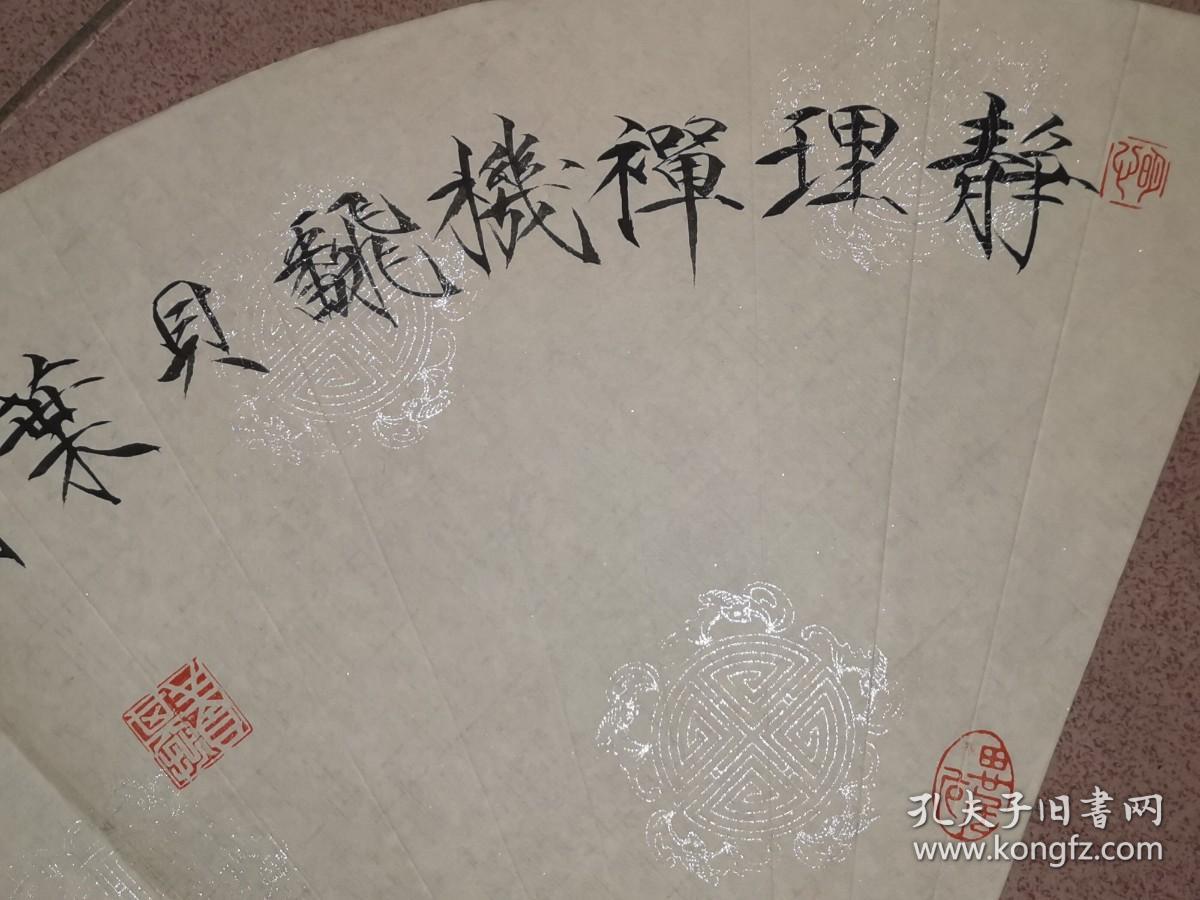 靜理禪機飜貝葉
孔夫子旧書网
www.kongfz.com